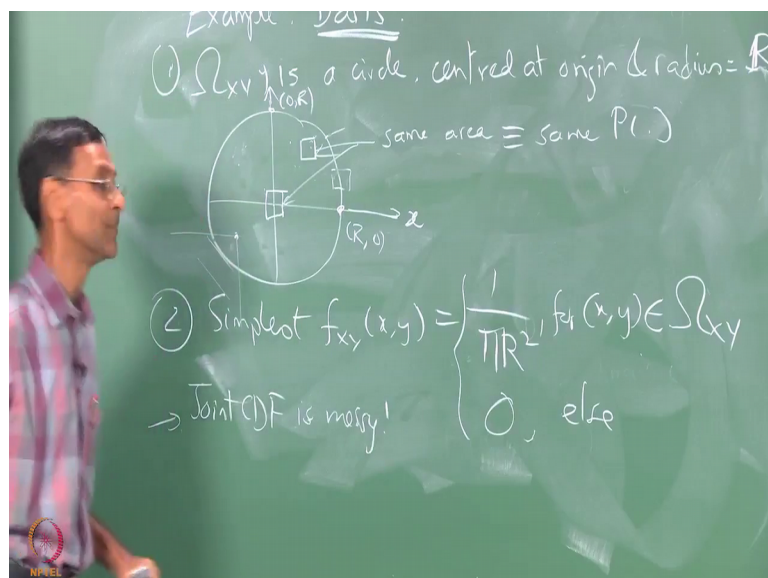 Example: Darts.
① Ω_XY is a circle, centred at origin & radius = R
y
(0,R)
same area ≡ same P(.)
x
(R, 0)
② Simplest f_XY(x,y) = { 1/πR², for (x,y) ∈ Ω_XY
0, else
→ Joint CDF is messy!
NPTEL